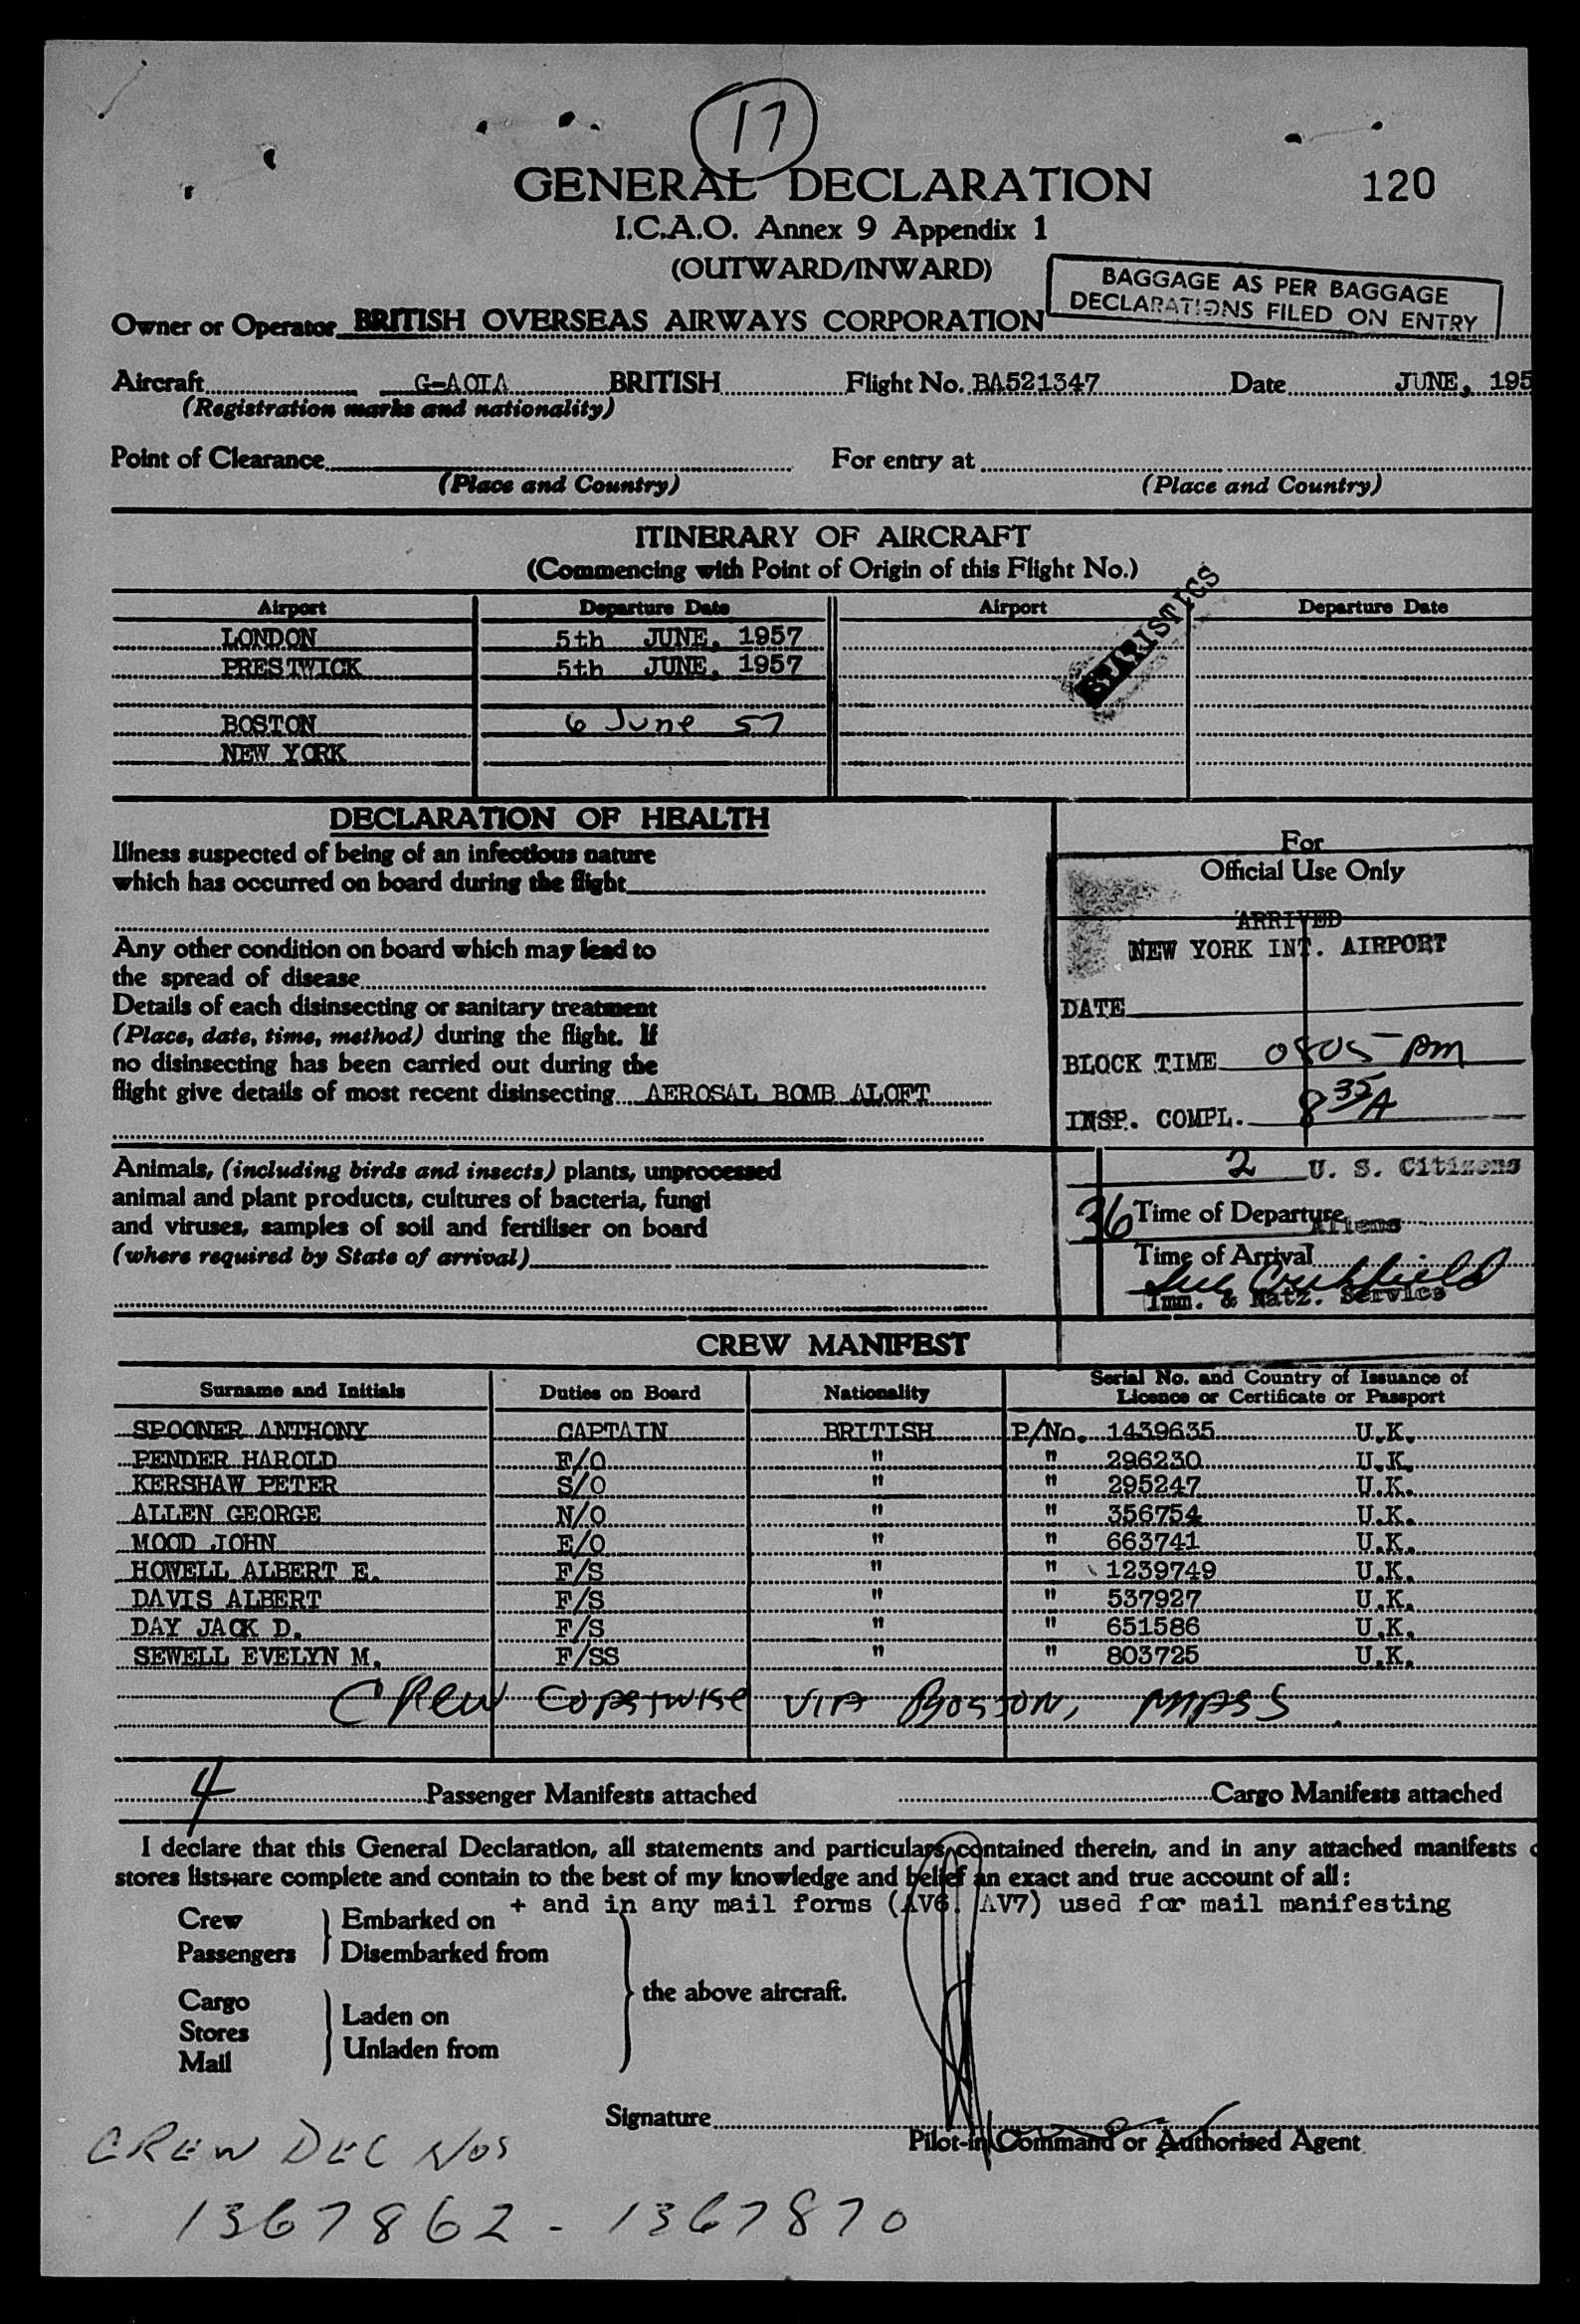 17
GENERAL DECLARATION 120
I.C.A.O. Annex 9 Appendix 1
(OUTWARD/INWARD)
BAGGAGE AS PER BAGGAGE
DECLARATIONS FILED ON ENTRY
Owner or Operator BRITISH OVERSEAS AIRWAYS CORPORATION
Aircraft G-AOIA BRITISH Flight No. BA521347 Date JUNE, 195
(Registration marks and nationality)
Point of Clearance For entry at
(Place and Country) (Place and Country)
ITINERARY OF AIRCRAFT
(Commencing with Point of Origin of this Flight No.)
STATISTICS
Airport Departure Date Airport Departure Date
LONDON 5th JUNE, 1957
PRESTWICK 5th JUNE, 1957
BOSTON 6 June 57
NEW YORK
DECLARATION OF HEALTH
Illness suspected of being of an infectious nature
which has occurred on board during the flight
Any other condition on board which may lead to
the spread of disease
Details of each disinsecting or sanitary treatment
(Place, date, time, method) during the flight. If
no disinsecting has been carried out during the
flight give details of most recent disinsecting AEROSAL BOMB ALOFT
For
Official Use Only
ARRIVED
NEW YORK INT. AIRPORT
DATE
BLOCK TIME 0805 pm
INSP. COMPL. 8 35 A
Animals, (including birds and insects) plants, unprocessed
animal and plant products, cultures of bacteria, fungi
and viruses, samples of soil and fertiliser on board
(where required by State of arrival)
2 U. S. Citizens
36 Time of Departure Aliens
Time of Arrival
Imm. & Natz. Service
CREW MANIFEST
Surname and Initials Duties on Board Nationality Serial No. and Country of Issuance of
Licence or Certificate or Passport
SPOONER ANTHONY CAPTAIN BRITISH P/No. 1439635 U.K.
PENDER HAROLD F/O " " 296230 U.K.
KERSHAW PETER S/O " " 295247 U.K.
ALLEN GEORGE N/O " " 356754 U.K.
MOOD JOHN E/O " " 663741 U.K.
HOWELL ALBERT E. F/S " " 1239749 U.K.
DAVIS ALBERT F/S " " 537927 U.K.
DAY JACK D. F/S " " 651586 U.K.
SEWELL EVELYN M. F/SS " " 803725 U.K.
CREW COASTWISE VIA BOSTON, MASS
4 Passenger Manifests attached Cargo Manifests attached
I declare that this General Declaration, all statements and particulars contained therein, and in any attached manifests
stores lists+are complete and contain to the best of my knowledge and belief an exact and true account of all:
+ and in any mail forms (AV6, AV7) used for mail manifesting
Crew Embarked on
Passengers Disembarked from
the above aircraft.
Cargo
Stores Laden on
Mail Unladen from
Signature
Pilot-in Command or Authorised Agent
CREW DEC NOS
1367862 - 1367870